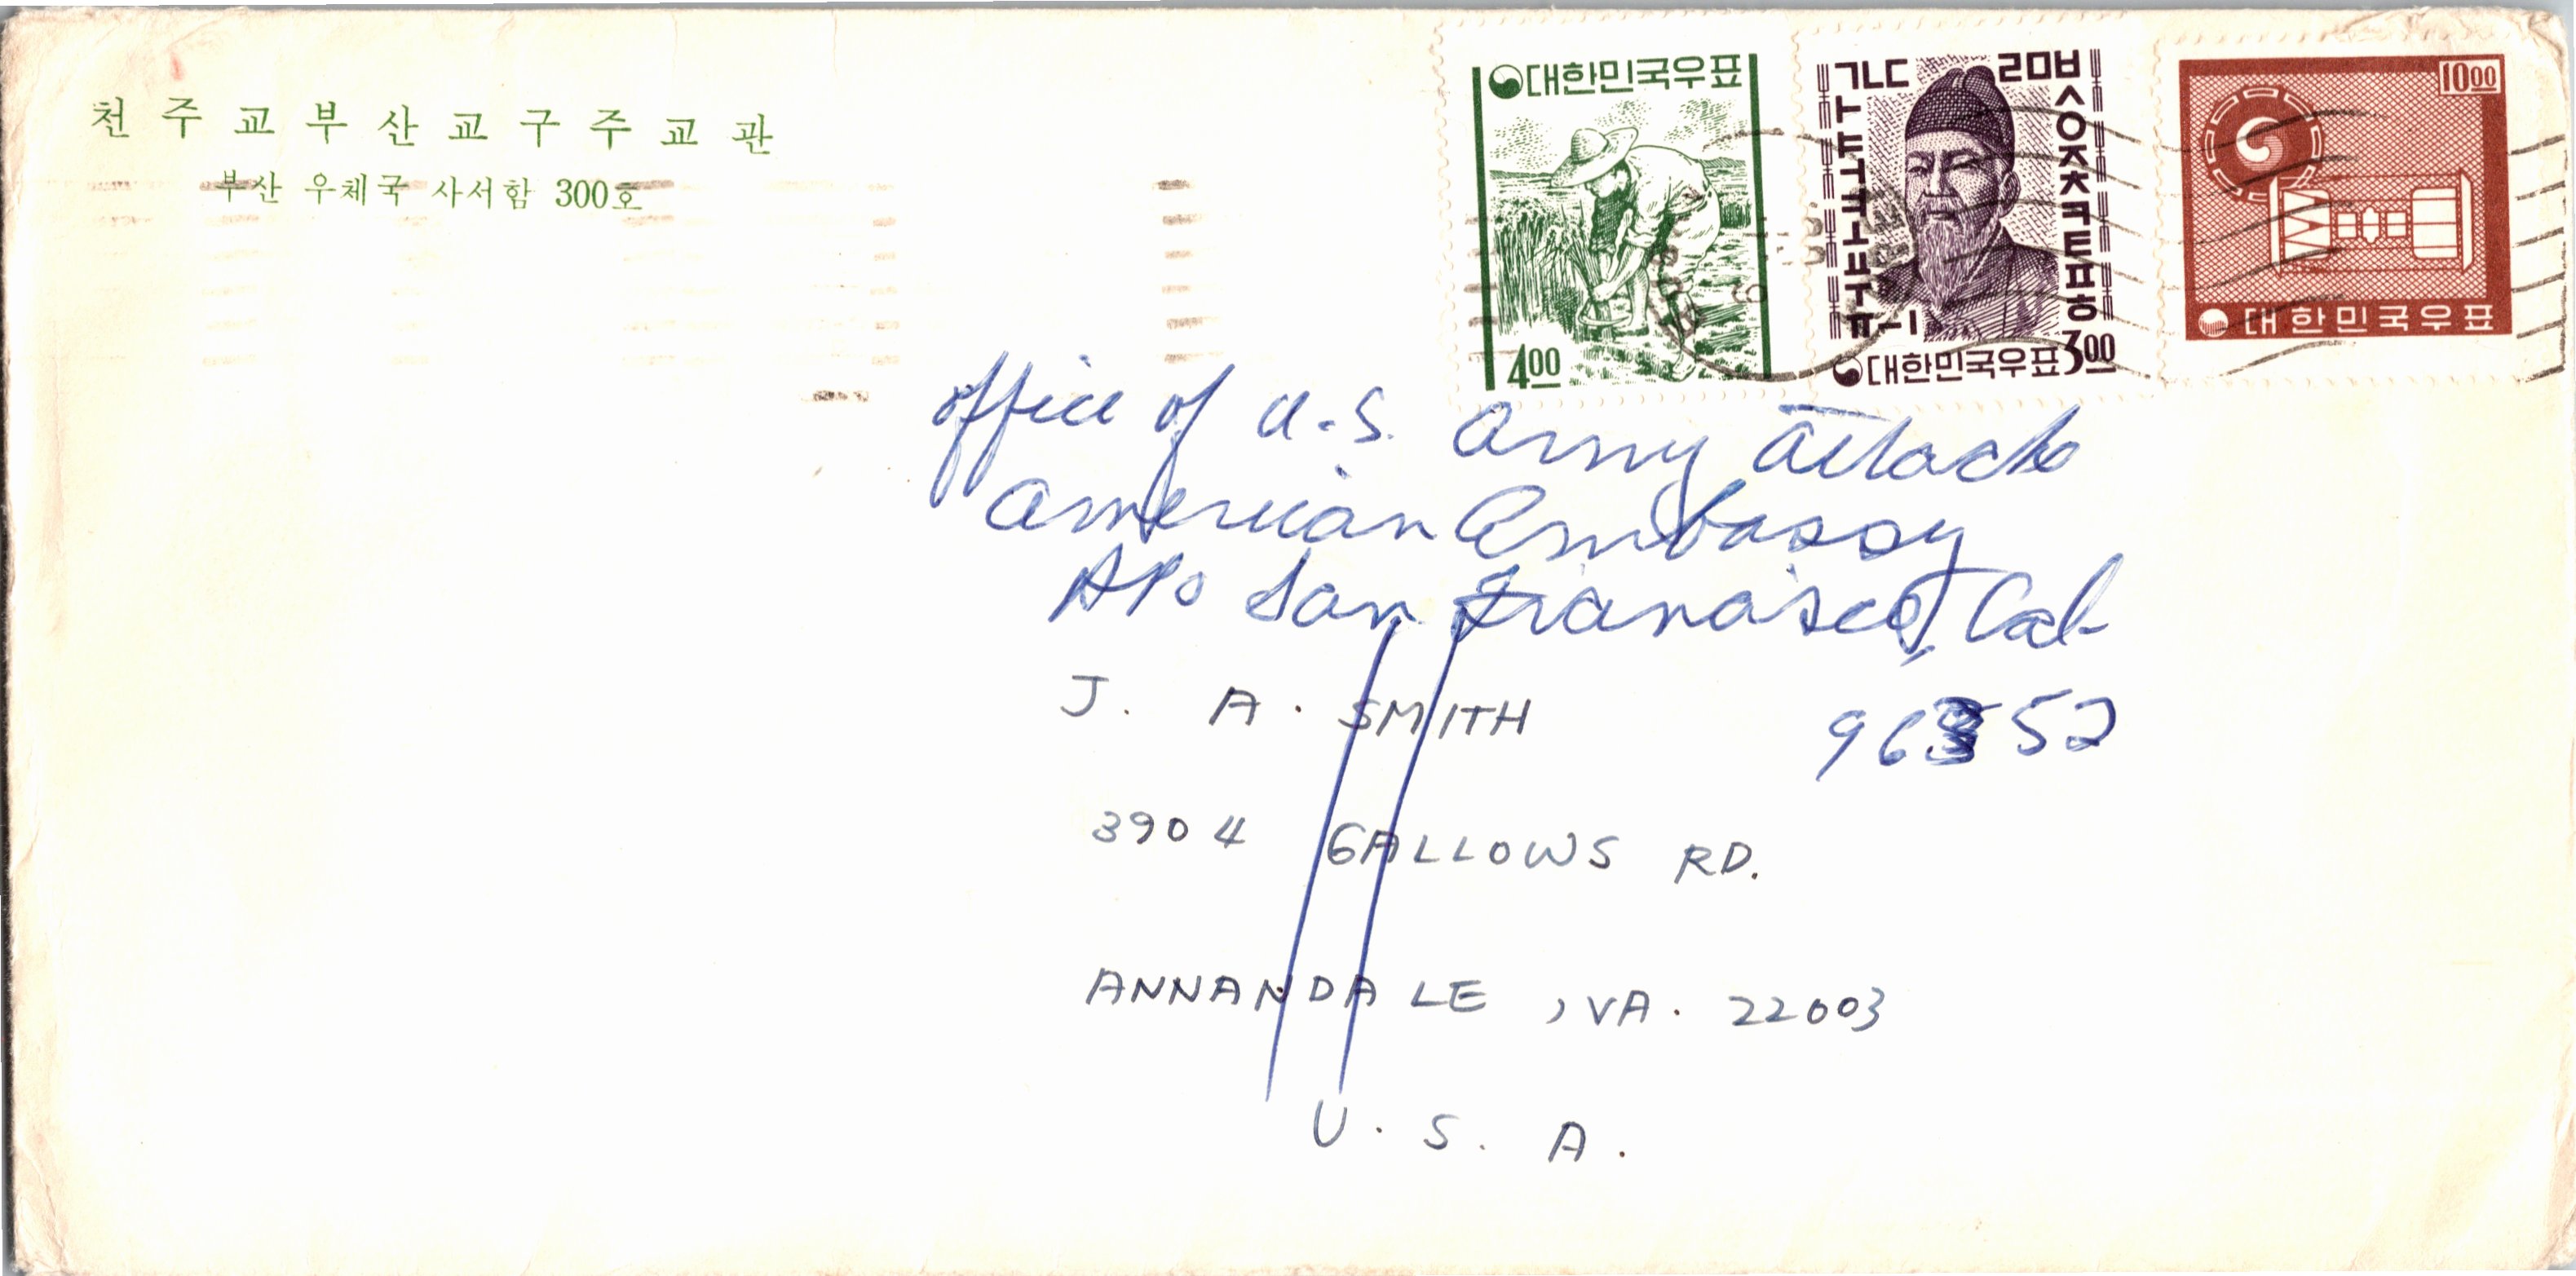 천주교부산교구주교관
부산 우체국 사서함 300호
대한민국우표
4.00
ㄱㄴㄷ ㄹㅁㅂ
ㅅㅇㅈㅊㅋㅌㅍㅎ
대한민국우표 3.00
10.00
대한민국우표
office of U.S. Army Attache
American Embassy
APO San Francisco, Cal-
96352
J. A. SMITH
3904 GALLOWS RD.
ANNANDALE, VA. 22003
U. S. A.